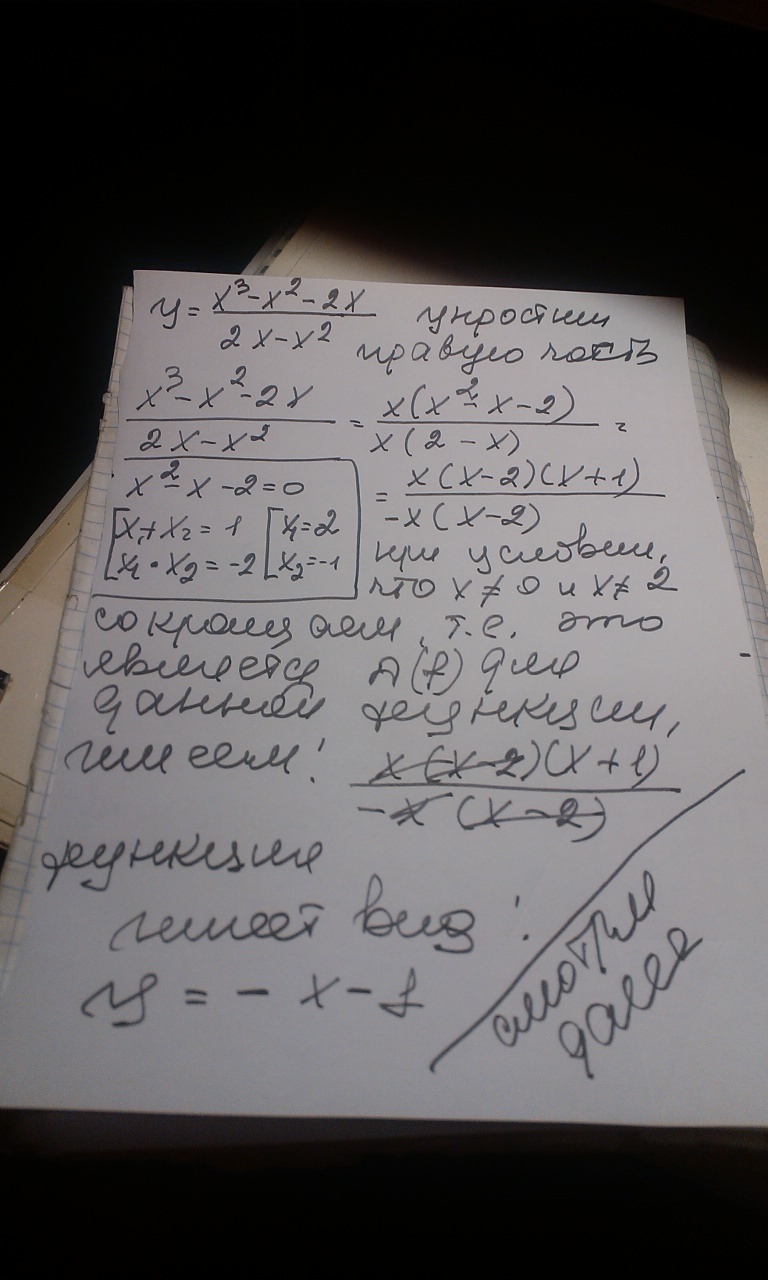 y = (x³-x²-2x)/(2x-x²) упростим
правую часть
(x³-x²-2x)/(2x-x²) = x(x²-x-2)/(x(2-x)) =
x²-x-2=0
[x₁+x₂=1 [x₁=2
[x₁·x₂=-2 [x₂=-1
= x(x-2)(x+1)/(-x(x-2))
при условии,
что x≠0 и x≠2
сокращаем, т.е. это
является Д(f) для
данной функции,
имеем: x(x-2)(x+1)/(-x(x-2))
функция
имеет вид:
y = -x-1
смотри
далее